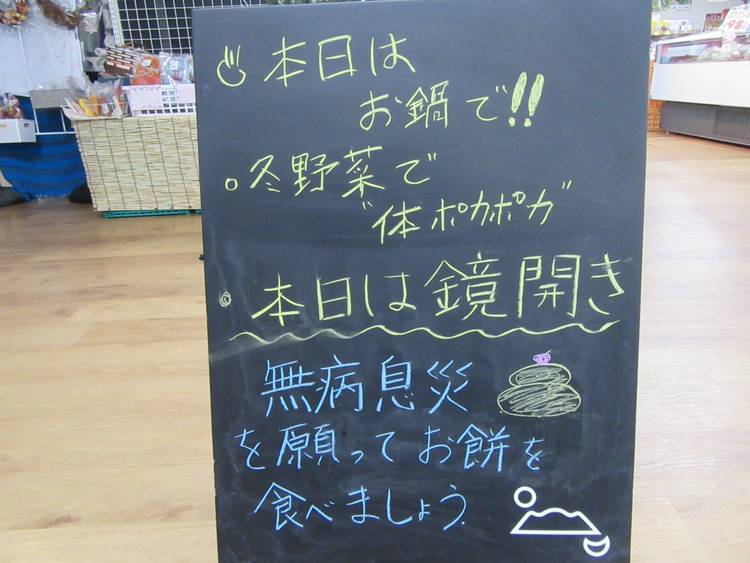 本日は
お鍋で!!
。冬野菜で
"体ポカポカ"
◎本日は鏡開き
無病息災
を願ってお餅を
食べましょう.